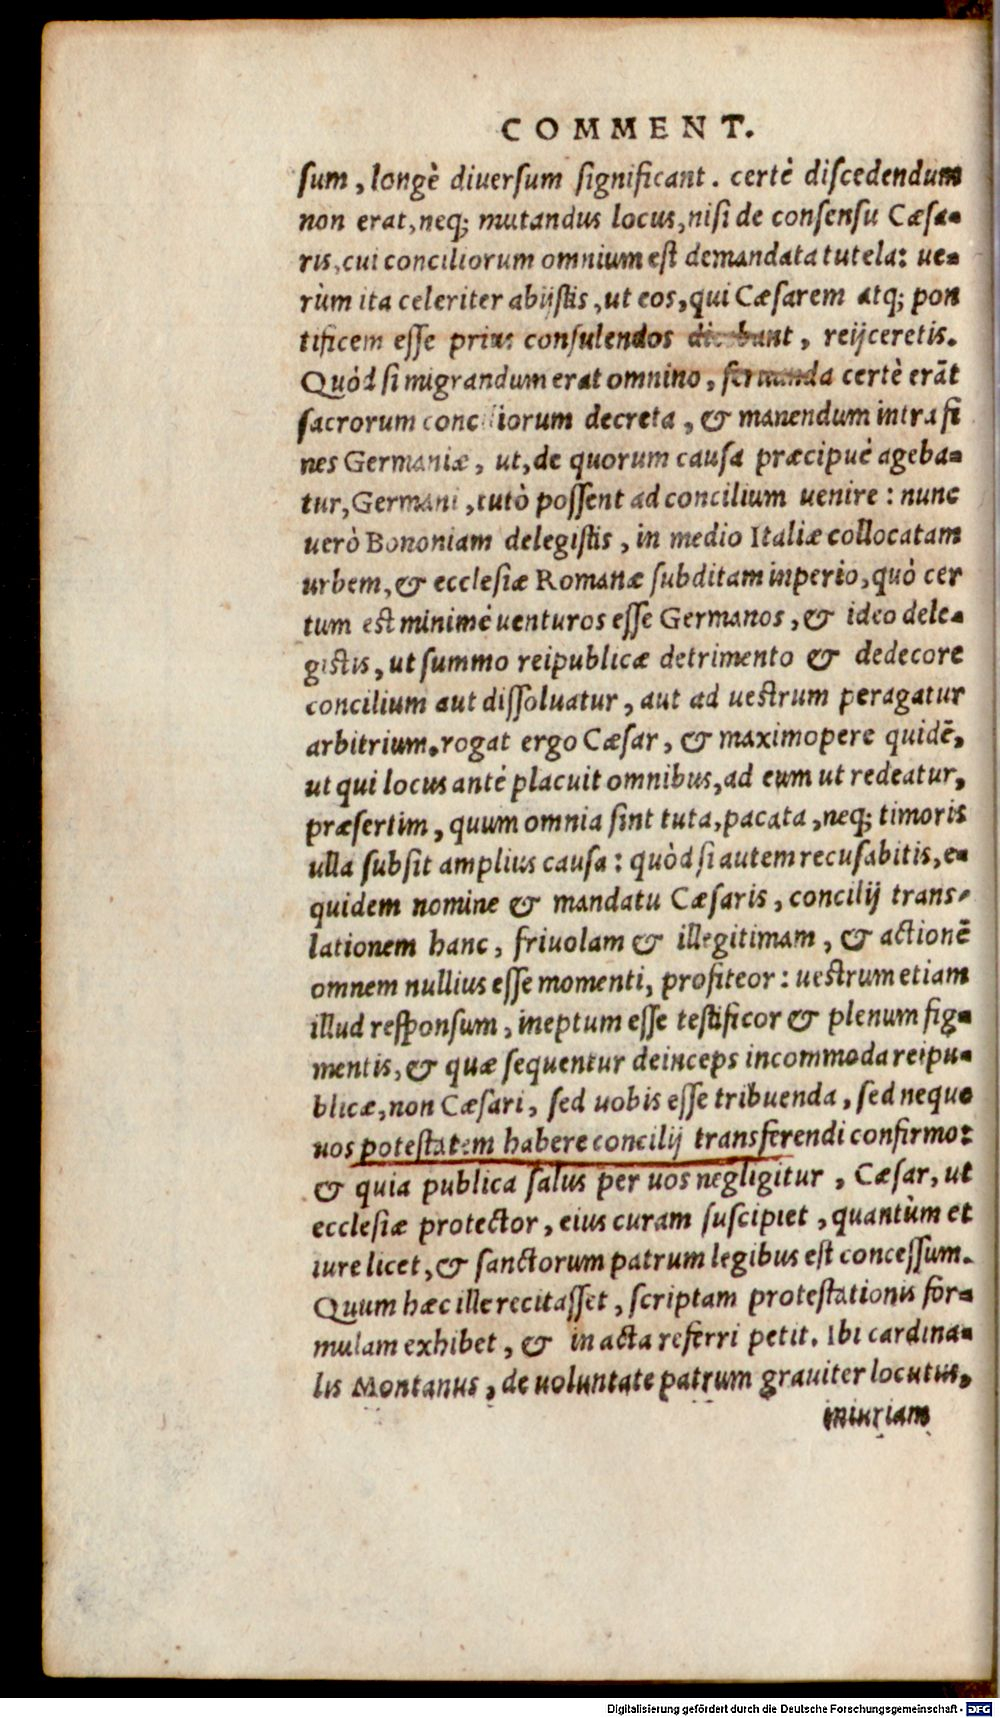 COMMENT.
sum, longè diuersum significant. certè discedendum
non erat, neq; mutandus locus, nisi de consensu Cæsa-
ris, cui conciliorum omnium est demandata tutela: ue-
rùm ita celeriter abijstis, ut eos, qui Cæsarem atq; pon
tificem esse prius consulendos dicebant, reijceretis.
Quòd si migrandum erat omnino, seruanda certè erãt
sacrorum conciliorum decreta, & manendum intra fi
nes Germaniæ, ut, de quorum causa præcipuè ageba-
tur, Germani, tutò possent ad concilium uenire: nunc
uerò Bononiam delegistis, in medio Italiæ collocatam
urbem, & ecclesiæ Romanæ subditam inperio, quò cer
tum est minimè uenturos esse Germanos, & ideo dele-
gistis, ut summo reipublicæ detrimento & dedecore
concilium aut dissoluatur, aut ad uestrum peragatur
arbitrium. rogat ergo Cæsar, & maximopere quidẽ,
ut qui locus antè placuit omnibus, ad eum ut redeatur,
præsertim, quum omnia sint tuta, pacata, neq; timoris
ulla subsit amplius causa: quòd si autem recusabitis, e-
quidem nomine & mandatu Cæsaris, concilij trans-
lationem hanc, friuolam & illegitimam, & actionẽ
omnem nullius esse momenti, profiteor: uestrum etiam
illud responsum, ineptum esse testificor & plenum fig-
mentis, & quæ sequentur deinceps incommoda reipu-
blicæ, non Cæsari, sed uobis esse tribuenda, sed neque
uos potestatem habere concilij transferendi confirmo:
& quia publica salus per uos negligitur, Cæsar, ut
ecclesiæ protector, eius curam suscipiet, quantùm et
iure licet, & sanctorum patrum legibus est concessum.
Quum hæc ille recitasset, scriptam protestationis for-
mulam exhibet, & in acta referri petit. Ibi cardina-
lis Montanus, de uoluntate patrum grauiter locutus,
iniuriam
Digitalisierung gefördert durch die Deutsche Forschungsgemeinschaft - DFG